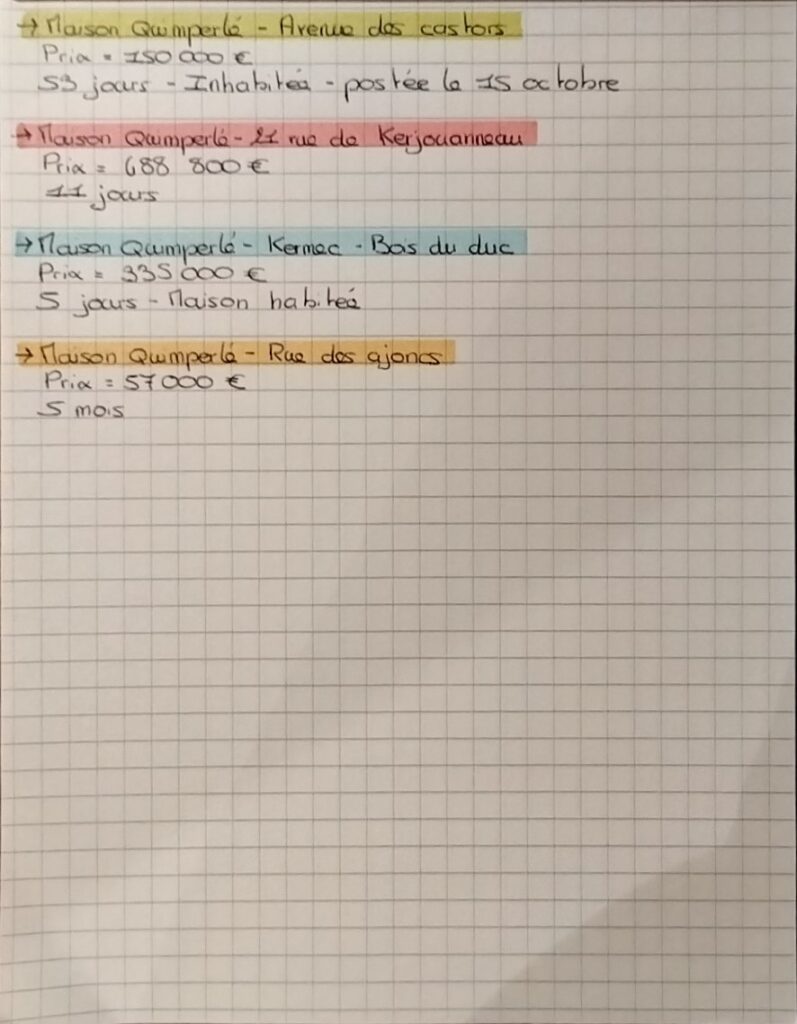 → Maison Quimperlé - Avenue des castors
Prix = 150 000 €
53 jours - Inhabitée - postée le 15 octobre
→ Maison Quimperlé - 21 rue de Kerjouanneau
Prix = 688 800 €
11 jours
→ Maison Quimperlé - Kermec - Bois du duc
Prix = 335 000 €
5 jours - Maison habiteé
→ Maison Quimperlé - Rue des ajoncs
Prix = 57 000 €
5 mois